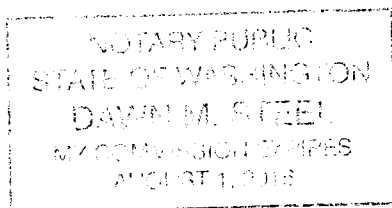 NOTARY PUBLIC
STATE OF WASHINGTON
DAWN M. STEEL
MY COMMISSION EXPIRES
AUGUST 1, 2016